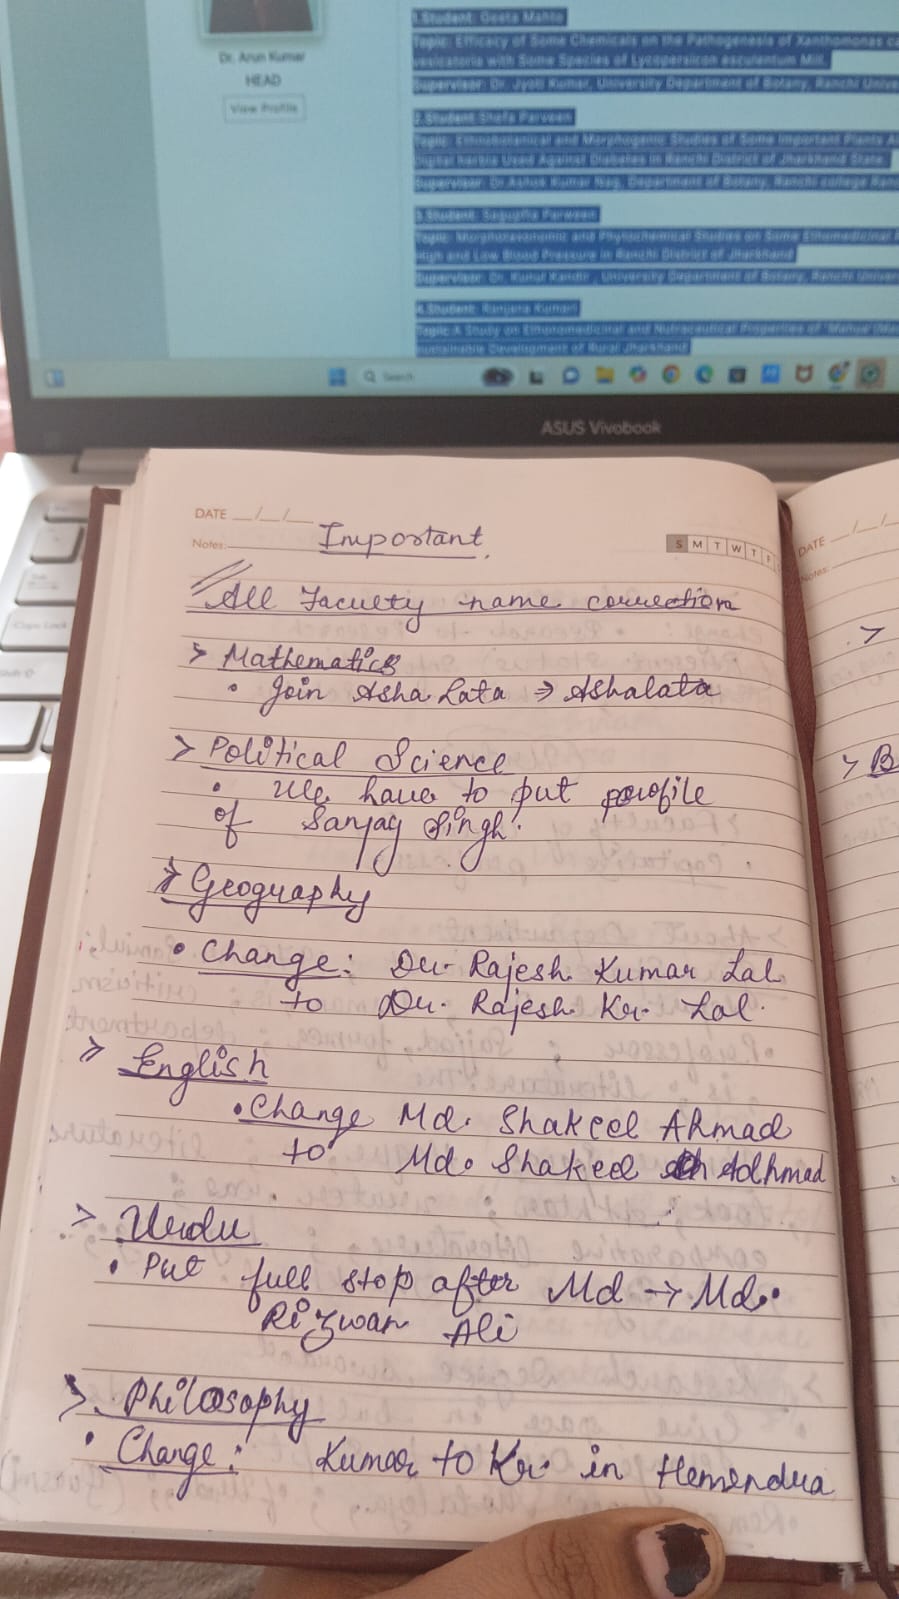 Dr. Arun Kumar
HEAD
View Profile
1.Student: Geeta Mahto
Topic: Efficacy of Some Chemicals on the Pathogenesis of Xanthomonas
vesicatoria with Some Species of Lycopersicon esculentum Mill.
Supervisor: Dr. Jyoti Kumar, University Department of Botany, Ranchi
2.Student: Shefa Parveen
Topic: Ethnobotanical and Morphogenic Studies of Some Important Plants
Used Against Diabetes in Ranchi District of Jharkhand State
Supervisor: Dr Ashok Kumar Nag, Department of Botany, Ranchi college
3.Student: Sagupfta Parween
Topic: Morphotaxonomic and Phytochemical Studies on Some
High and Low Blood Pressure in Ranchi District of Jharkhand
Supervisor: Dr. Kunul Kandir, University Department of Botany, Ranchi
4.Student: Ranjana Kumari
Topic:A Study on Ethonomedicinal and Nutraceutical Properties of 'Mahua'
sustainable Development of Rural Jharkhand
Search
ASUS Vivobook
DATE __/__/__
Notes: Important
S M T W T F
All Faculty name correction
> Mathematics
• Join Asha Lata ⇒ Ashalata
> Political Science
• We have to put profile
of Sanjay Singh.
> Geography
• Change: Dr. Rajesh Kumar Lal
to Dr. Rajesh Kr. Lal.
> English
• Change Md. Shakeel Ahmad
to Md. Shakeel Adhmad
> Urdu
• Put full stop after Md → Md.
Rizwan Ali
> Philosophy
• Change: Kumar to Kr. in Hemendra
DATE __/__/
Notes:
>
> B